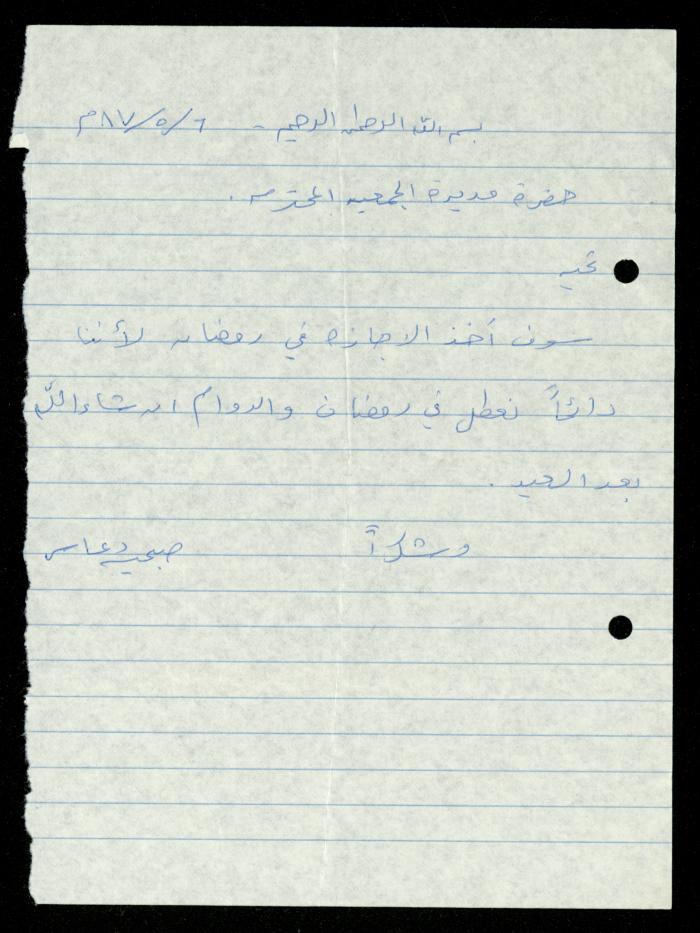 بسم الله الرحمن الرحيم - ٦/٥/٨٧م
حضرة مديرة الجمعيه المحترمه .
تحيه
سوف أخذ الاجازه في رمضان لأننا
دائماً نعطل في رمضان والدوام ان شاء الله
بعد العيد .
وشكراً صبحيه دعاس